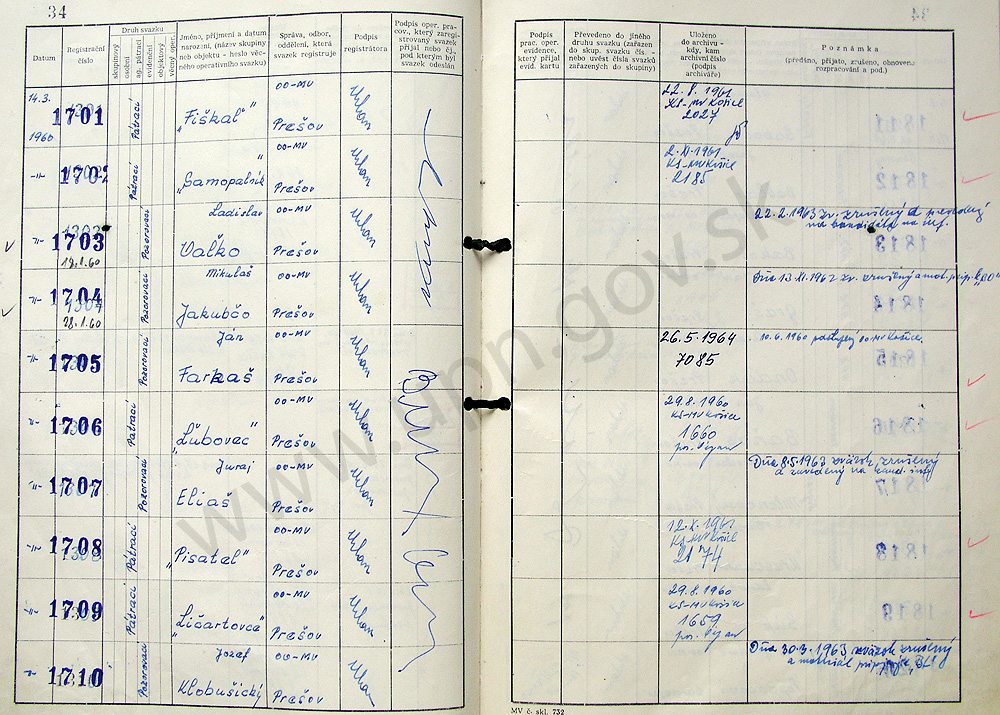 34
Datum
Registrační číslo
Druh svazku
skupinový
osobní
ag. pátrací
evidenční
objektový
věcný oper.
Jméno, příjmení a datum narození, (název skupiny neb objektu - heslo věcného operativního svazku)
Správa, odbor, oddělení, která svazek registruje
Podpis registrátora
Podpis oper. pracov., který zaregistrovaný svazek přijal nebo čj., pod kterým byl svazek odeslán
14.3. 1960 1701 Pátrací „Fiškal" OO-MV Prešov Urban
-"- 1702 Pátrací „Samopalník" OO-MV Prešov Urban
-"- 1703 18.1.60 Pozorovací Ladislav Vaľko OO-MV Prešov Urban
-"- 1704 28.1.60 Pozorovací Mikuláš Jakubčo OO-MV Prešov Urban
-"- 1705 Pozorovací Ján Farkaš OO-MV Prešov Urban
-"- 1706 Pátrací „Ľubovec" OO-MV Prešov Urban
-"- 1707 Pozorovací Juraj Eliaš OO-MV Prešov Urban
-"- 1708 Pátrací „Pisateľ" OO-MV Prešov Urban
-"- 1709 Pátrací „Ličartovce" OO-MV Prešov Urban
-"- 1710 Pozorovací Jozef Klobušický OO-MV Prešov Urban
Podpis prac. oper. evidence, který přijal evid. kartu
Převedeno do jiného druhu svazku (zařazen do skup. svazku čís. - nebo uvést čísla svazků zařazených do skupiny)
Uloženo do archivu - kdy, kam archivní číslo (podpis archiváře)
Poznámka
(předáno, přijato, zrušeno, obnoveno rozpracování a pod.)
22.8.1961
KS-MV Košice
2027
2.XI.1961
KS-MV Košice
2185
22.2.1963 zv. zrušený a prevedený
na kandidáta na inf.
Dňa 13.XI.1962 zv. zrušený a mat.
26.5.1964
7085
10.6.1960 postúpený OO MV Košice
29.8.1960
KS-MV Košice
1660
Dňa 8.5.1963 zväzok zrušený
a zavedený na kand. inf.
12.X.1961
KS-MV Košice
2174
29.8.1960
KS-MV Košice
1659
Dňa 30.3.1963 zväzok zrušený
a materiál
MV č. skl. 732
www.upn.gov.sk